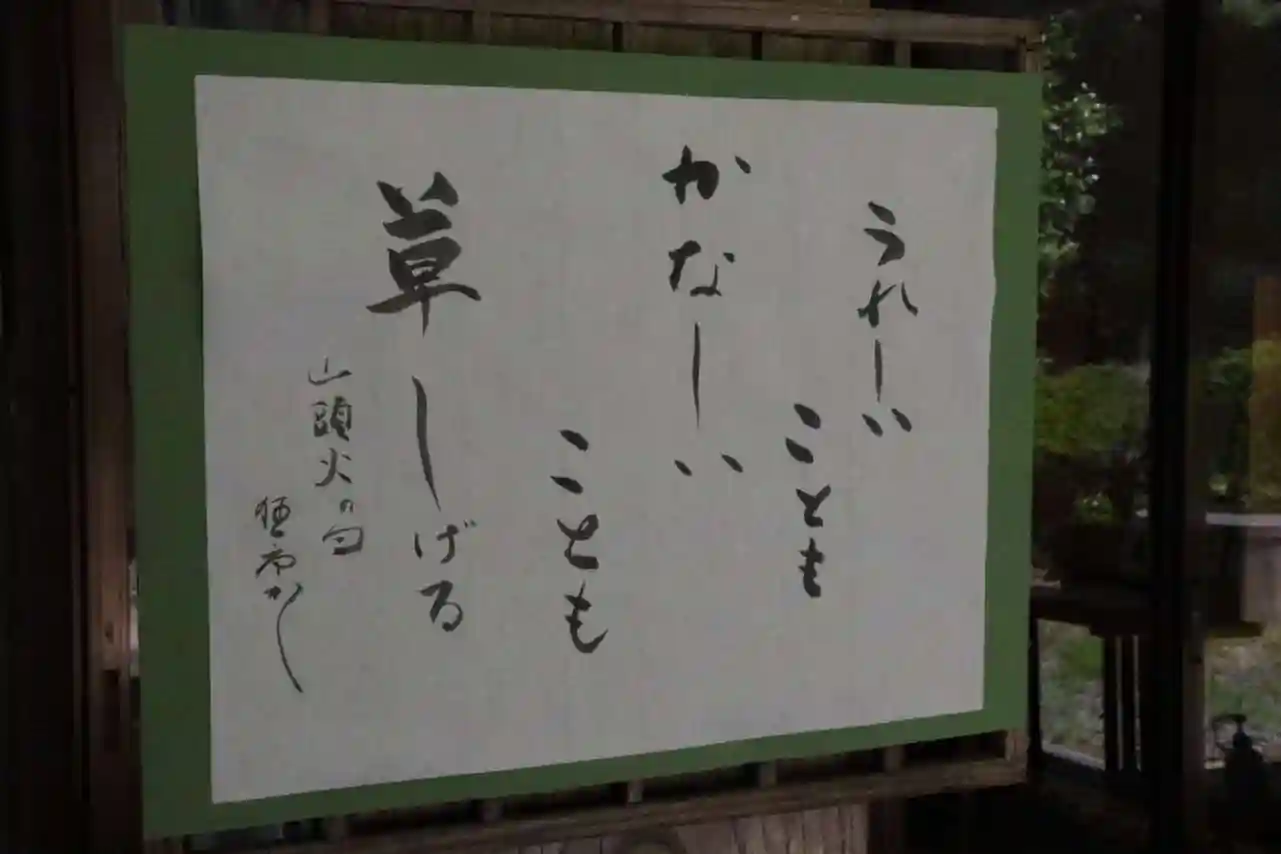 うれしい
ことも
かなしい
ことも
草しげる
山頭火の句